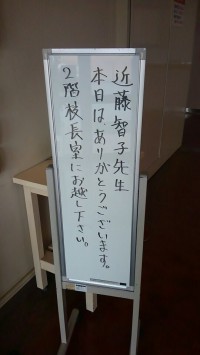 近藤智子先生
本日は、ありがとうございます。
2階校長室にお越し下さい。